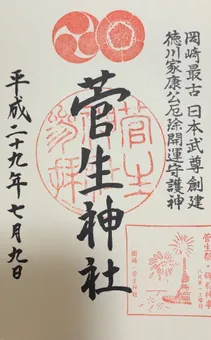 岡崎最古 日本武尊創建
徳川家康公厄除開運守護神
菅生神社
参拝
平成二十九年七月九日